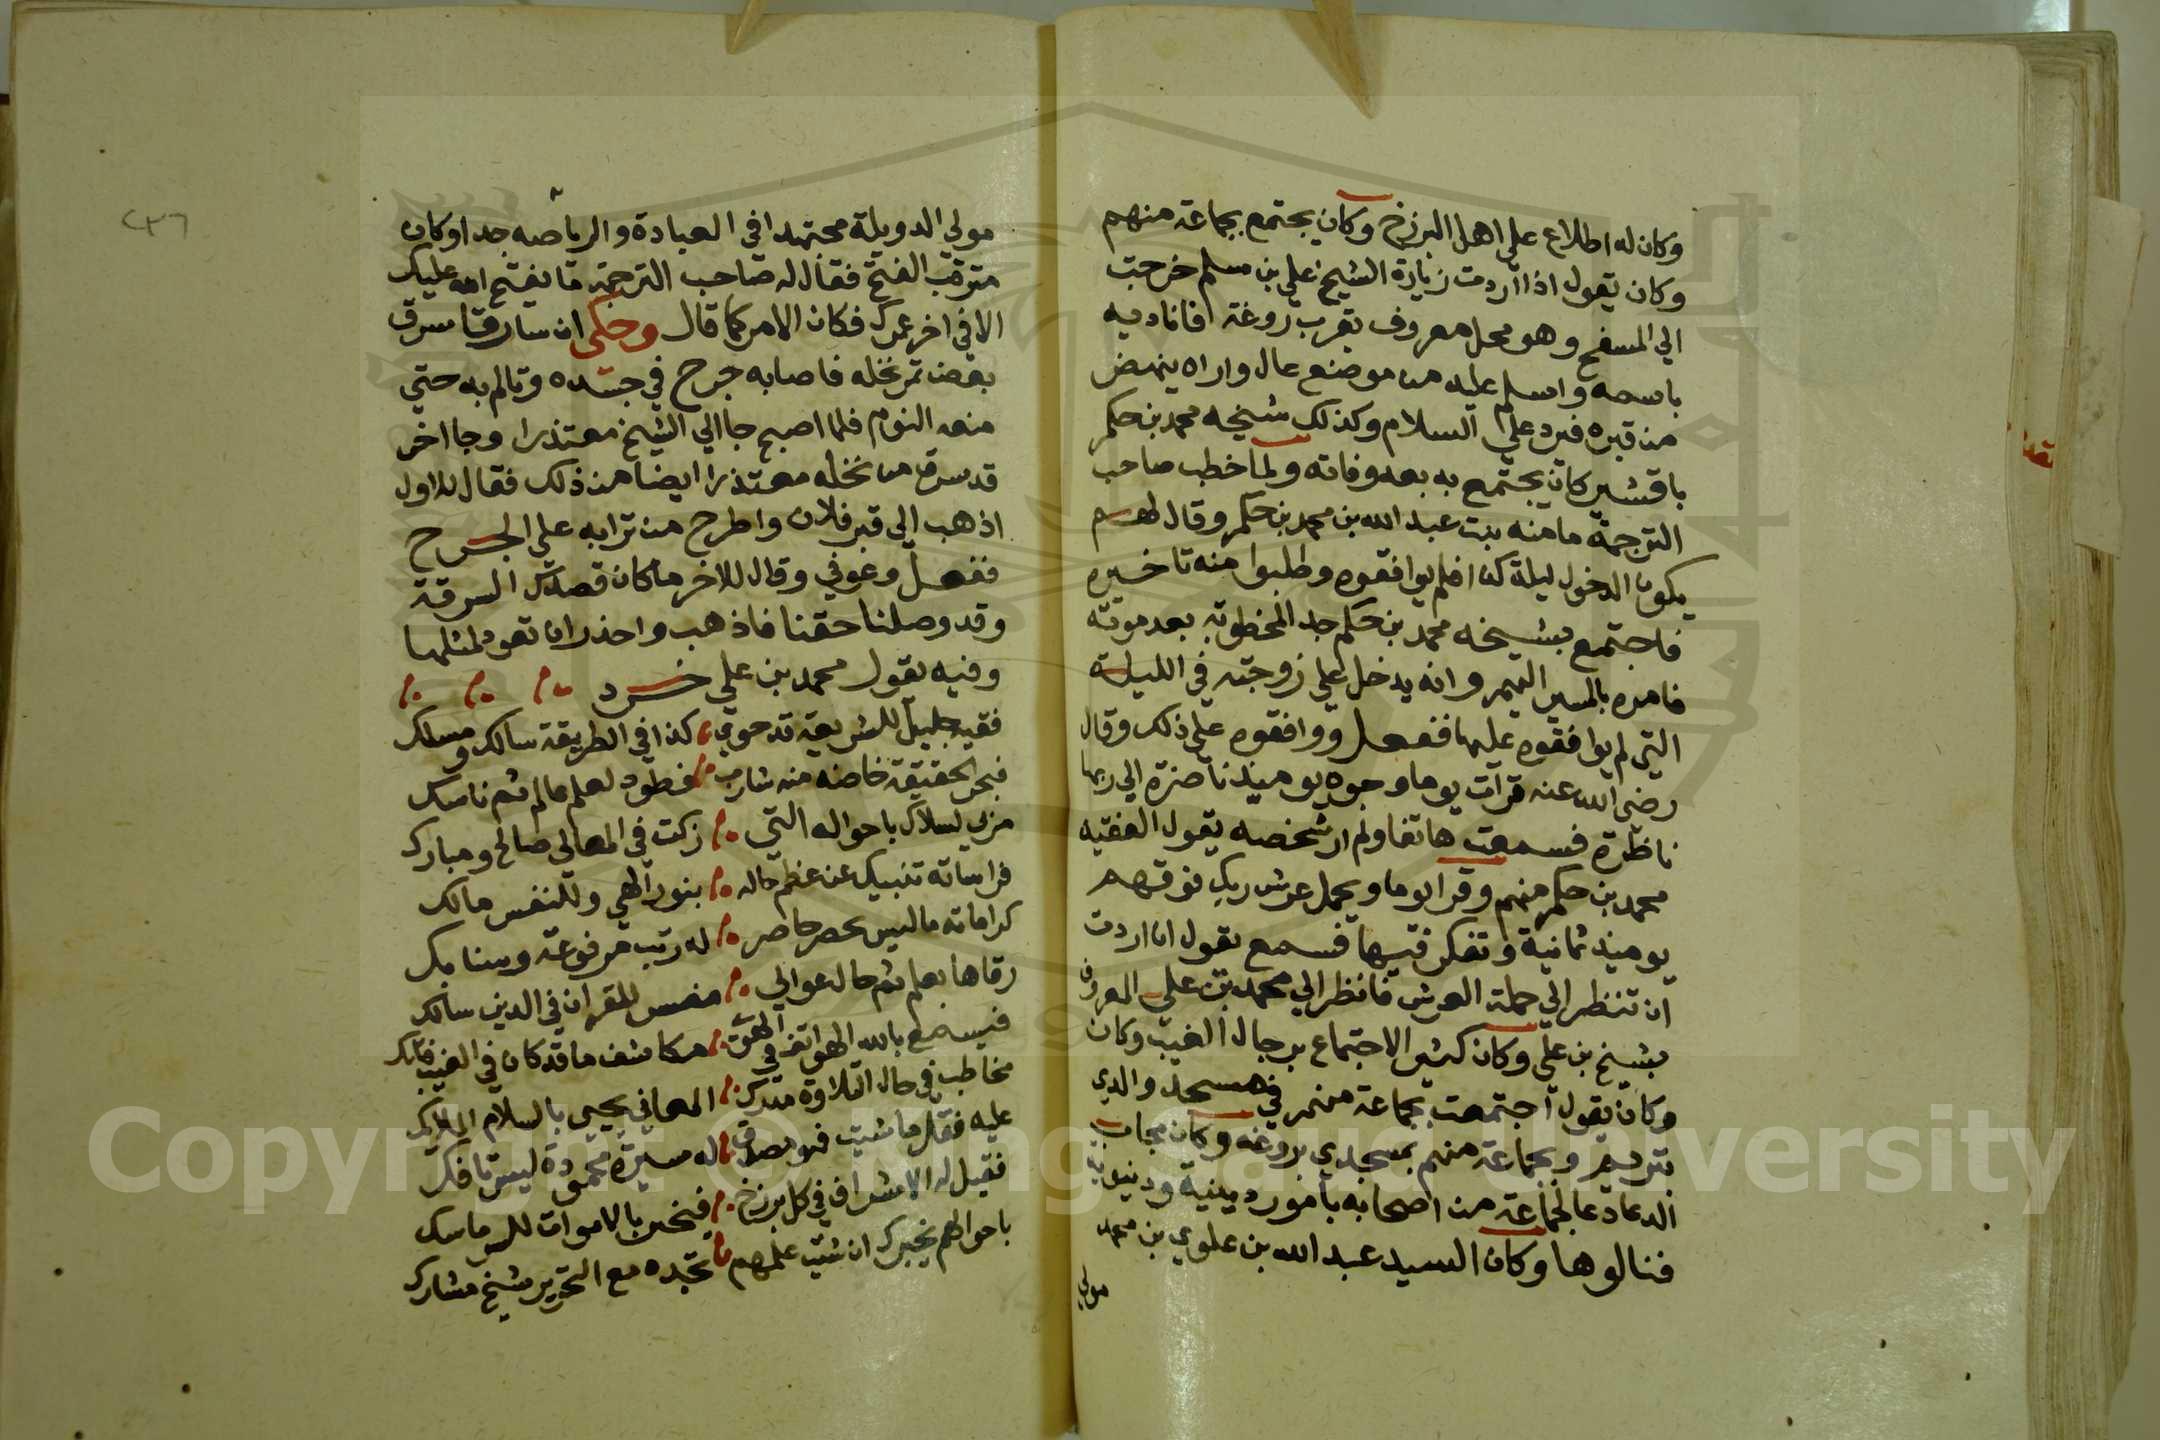 وكان له اطلاع علي اهل البرزخ وكان يجتمع بجماعة منهم
وكان يقول اذا اردت زيارة الشيخ علي بن مسلم خرجت
الي المسفح وهو محل معروف بقرب روغة فاناديه
باسمه واسلم عليه من موضع عال واراه ينهض
من قبره فيرد علي السلام وكذلك شيخه محمد بن حكم
باقشير كان يجتمع به بعد وفاته ولما خطب صاحب
الترجمة مامنه بنت عبد الله بن محمد بن حكم وقال لهم
يكون الدخول ليلة كذا فلم يوافقوه وطلبوا منه تاخيره
فاجتمع بشيخه محمد بن حكم جد المخطوبة بعد موته
فامره بالمسير اليهم وانه يدخل علي زوجته في الليلة
التي لم يوافقوه عليها ففعل ووافقوه علي ذلك وقال
رضي الله عنه قرات يوما وجوه يوميذ ناضرة الي ربها
ناظرة فسمعت هاتفا ولم ار شخصه يقول الفقيه
محمد بن حكم منهم وقرا يوما ويحمل عرش ربك فوقهم
يوميذ ثمانية وتفكر فيها فسمع يقول ان اردت
ان تنظر الي حملة العرش فانظر الي محمد بن علي المعروف
بشيخ بن علي وكان كثير الاجتماع برجال الغيب وكان
وكان يقول اجتمعت بجماعة منهم في مسجد والدي
بتريم وبجماعة منهم بمسجدي بروغه وكان مجاب
الدعا دعا لجماعة من اصحابه بامور دينية ودنيوية
فنالوها وكان السيد عبد الله بن علوي بن محمد
مولي
مولي الدويلة مجتهدا في العبادة والرياضه جدا وكان
مترقب الفتح فقال له صاحب الترجمة ما يفتح الله عليك
الا في اخر عمرك فكان الامر كما قال وحكي ان سارقا سرق
بعض تمر نخله فاصابه جرح في جسده وتالم به حتي
منعه النوم فلما اصبح جا الي الشيخ معتذرا وجا اخر
قد سرق من نخله معتذرا ايضا من ذلك فقال للاول
اذهب الي قبر فلان واطرح من ترابه علي الجرح
ففعل وعوفي وقال للاخر ما كان قصدك السرقة
وقد وصلنا حقنا فاذهب واحذر ان تعود لمثلها
وفيه يقول محمد بن علي خرد
فقيه جليل للشريعة قد حوي كذا في الطريقة سالك ومسلك
فبحر الحقيقة خاضه منه شارب فطود لعلم عالم ثم ناسك
مزي لسلاك باحواله التي زكت في المعالي صالح ومبارك
فراساته تنبيك عن عظم حاله بنور الهي وللنفس مالك
كراماته ما ليس يحصر حاصر له رتب مرفوعة وسنابك
رقاها بعلم ثم حال عوالي مفسر للقران في الدين سالك
فيسمع بالله الهواتف في الهوي مكاشف ما قد كان في الغيب
مخاطب في حال التلاوة مدرك المعاني يحيى بالسلام الملايك
عليه فقل ما شيت فهو مصدق له سيرة محمودة ليس تافك
فقيل له الاشراف في كل برزخ فيخبر بالاموات للسر ماسك
باحوالهم يخبرك ان شيت علمهم تجده مع التحرير شيخ مشارك
Copyright © King Saud University